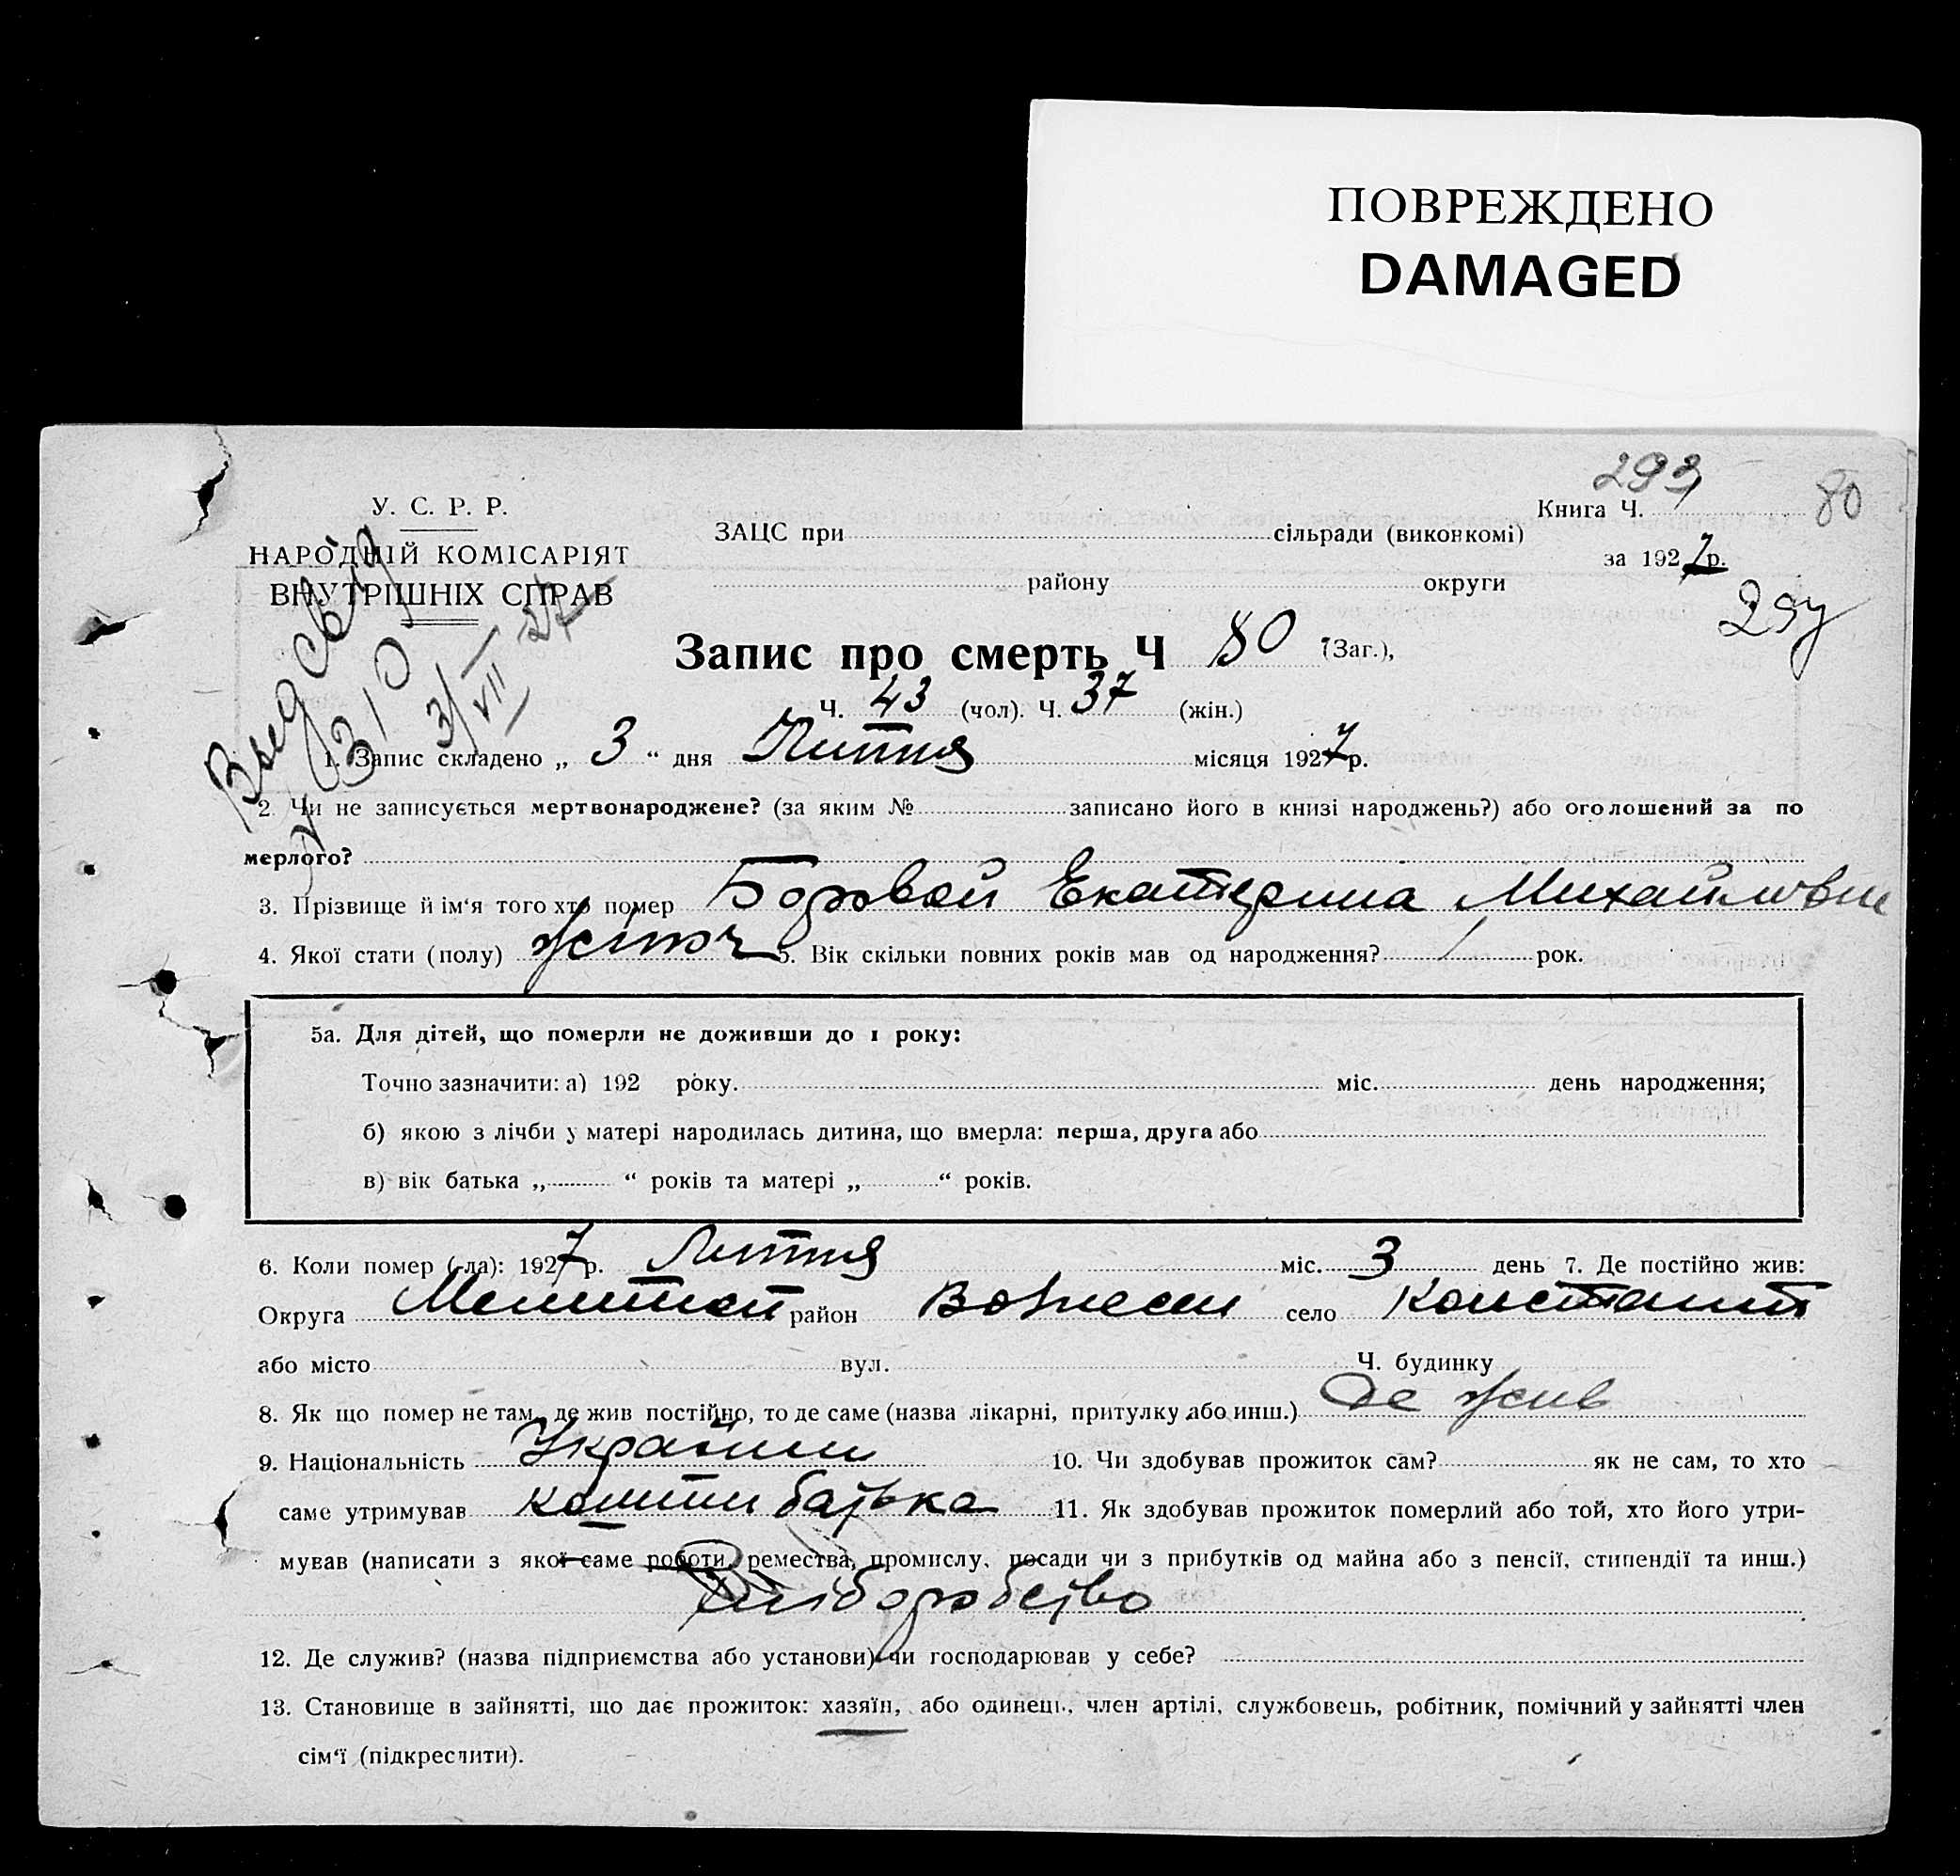 ПОВРЕЖДЕНО
DAMAGED
293
80
У. С. Р. Р.
НАРОДНІЙ КОМІСАРІЯТ
ВНУТРІШНІХ СПРАВ
ЗАЦС при сільради (виконкомі)
району округи
Книга Ч.
за 1927 р.
310
3/VII 27
Запис про смерть Ч 80 (Заг.),
Ч. 43 (чол). Ч. 37 (жін.)
1. Запис складено „ 3 “ дня Липня місяця 1927 р.
2. Чи не записується мертвонароджене? (за яким № записано його в книзі народжень?) або оголошений за по
мерлого?
3. Прізвище й ім‘я того хто помер Боровой Екатерина Михайловне
4. Якої статі (полу) жіноч 5. Вік скільки повних років мав од народження? 1 рок.
5а. Для дітей, що померли не доживши до 1 року:
Точно зазначити: а) 192 року. міс. день народження;
б) якою з лічби у матері народилась дитина, що вмерла: перша, друга або
в) вік батька „ “ років та матері „ “ років.
6. Коли помер (-ла): 1927 р. Липня міс. 3 день 7. Де постійно жив:
Округа Мелитоп район Вознесен село Константи
або місто вул. Ч. будинку
8. Як що помер не там, де жив постійно, то де саме (назва лікарні, притулку або инш.) де жив
9. Національність Україн 10. Чи здобував прожиток сам? як не сам, то хто
саме утримував кошти батька 11. Як здобував прожиток померлий або той, хто його утри-
мував (написати з якої саме роботи, ремества, промислу, посади чи з прибутків од майна або з пенсії, стипендії та инш.)
Хліборобство
12. Де служив? (назва підприємства або установи) чи господарював у себе?
13. Становище в зайнятті, що дає прожиток: хазяїн, або одинець, член артілі, службовець, робітник, помічний у зайнятті член
сім‘ї (підкреслити).